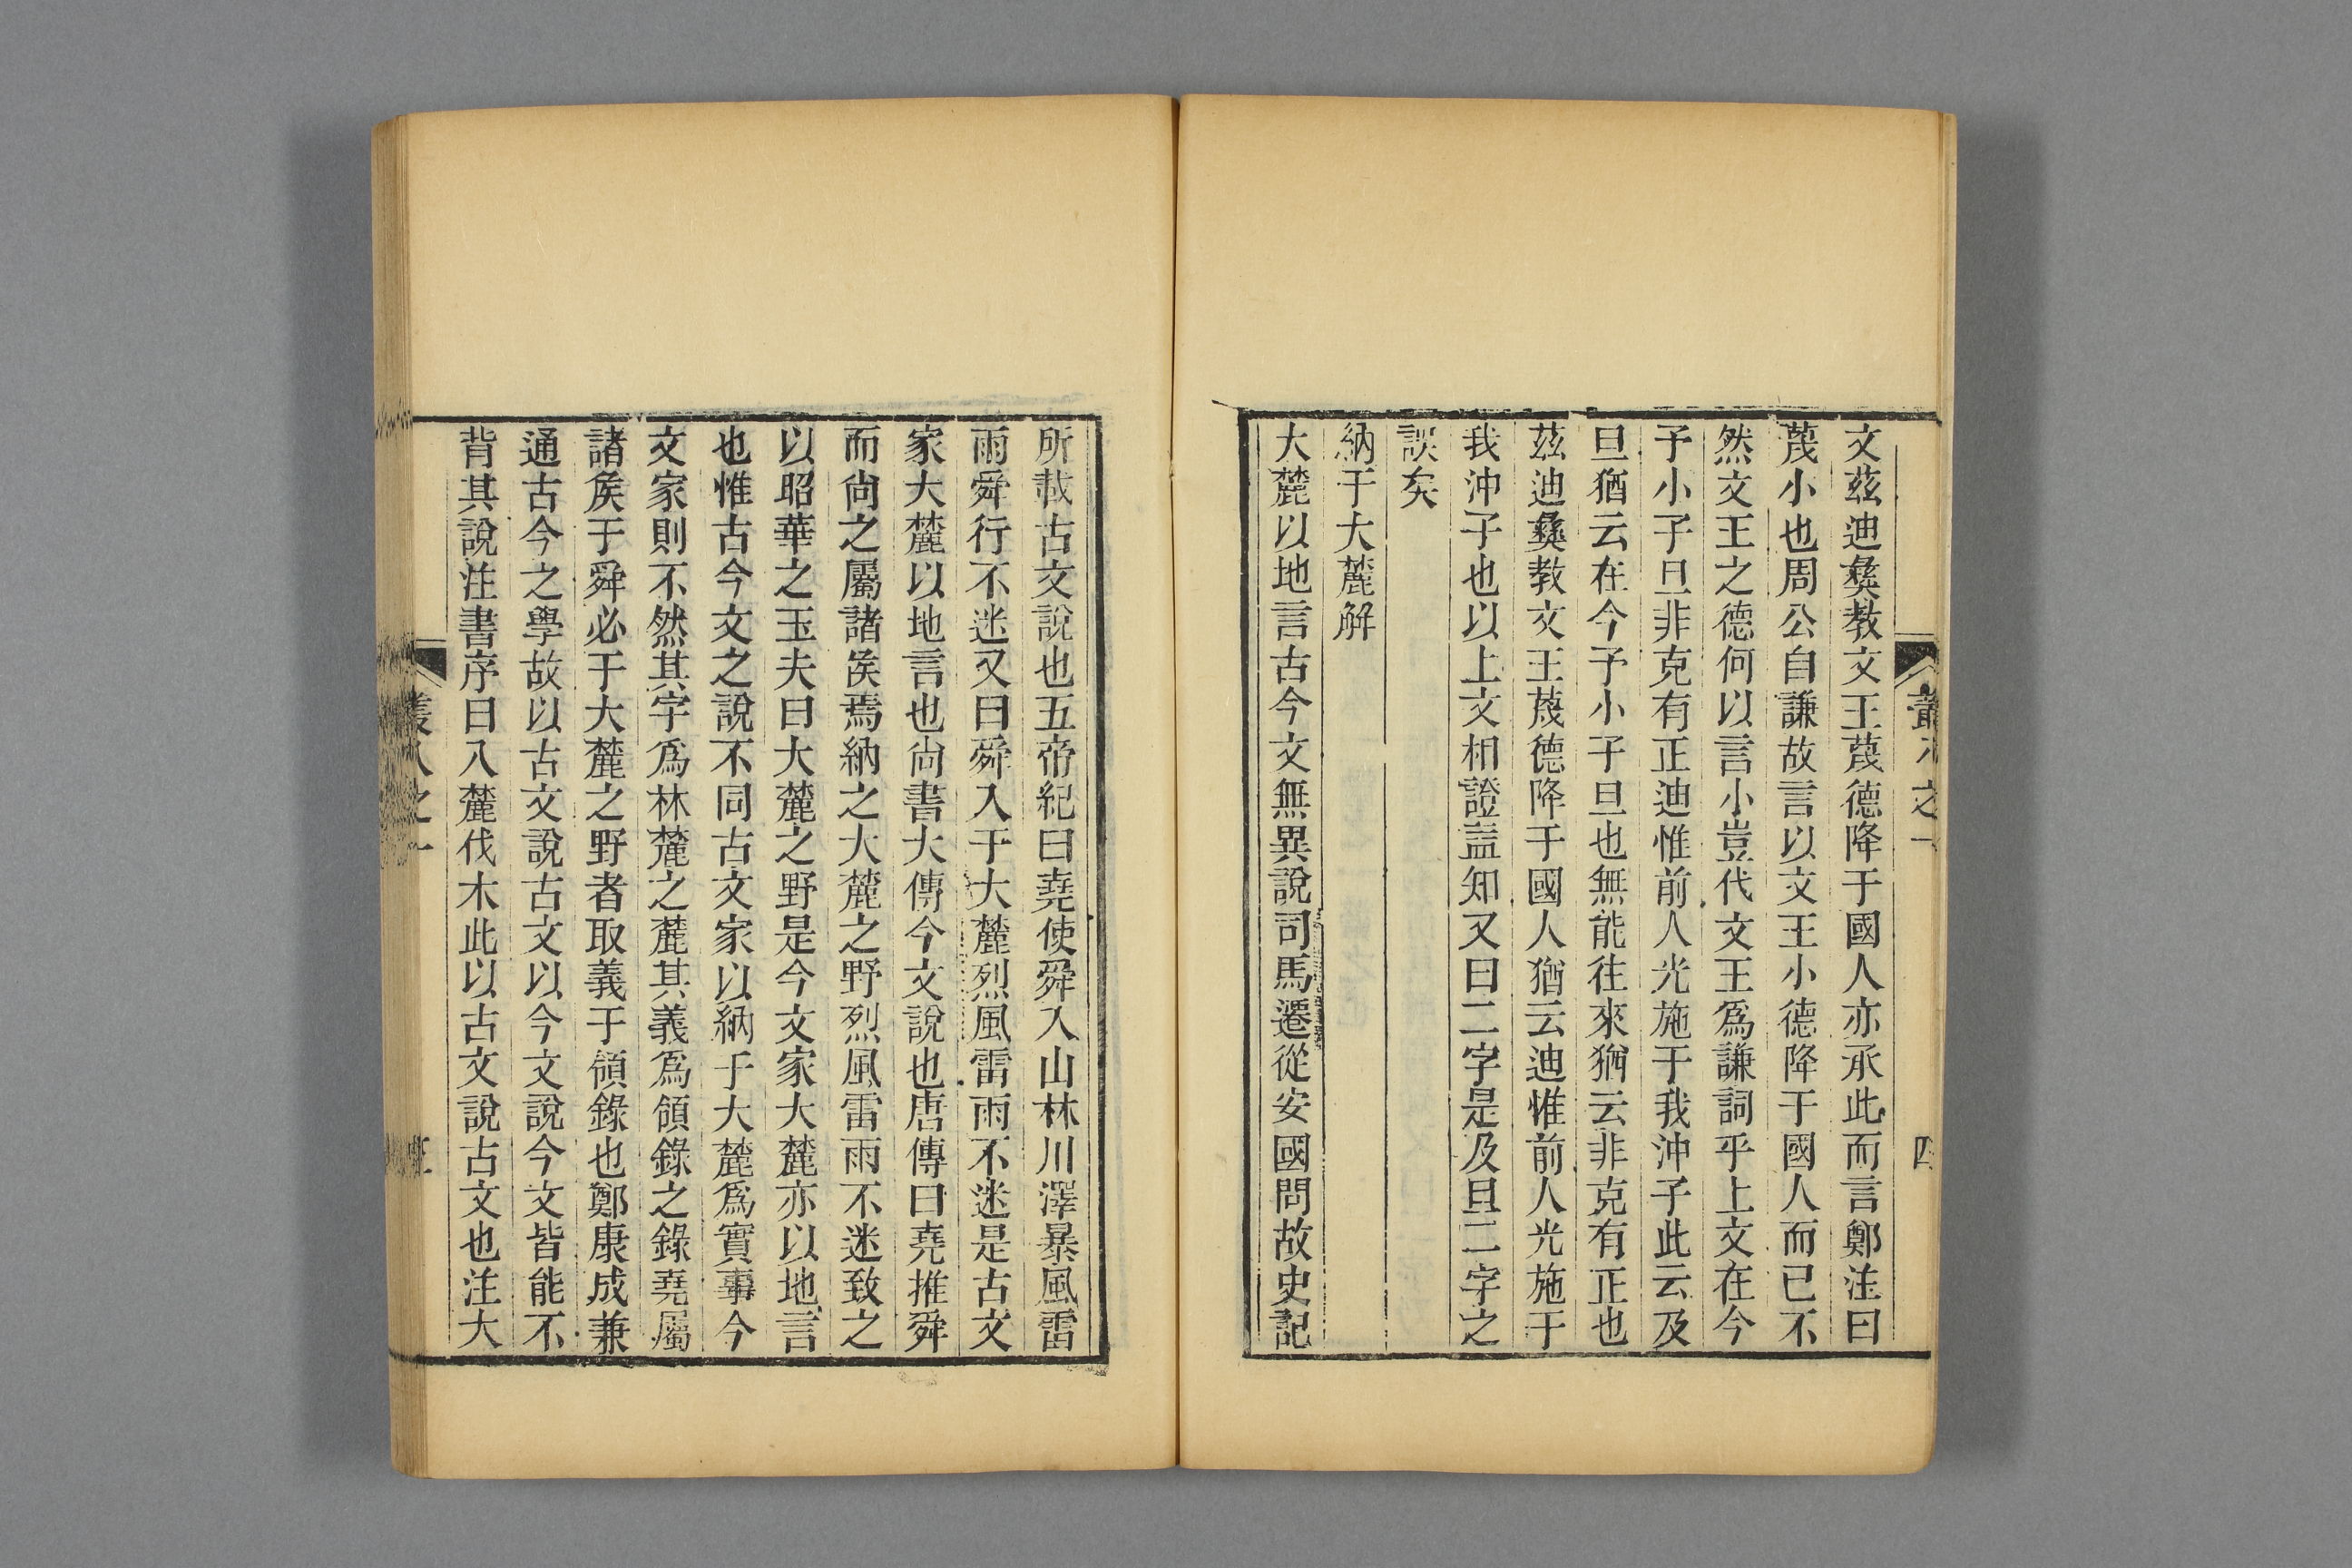 文茲迪彝教文王蔑德降于國人亦承此而言鄭注曰
蔑小也周公自謙故言以文王小德降于國人而已不
然文王之德何以言小豈代文王爲謙詞乎上文在今
予小子旦非克有正迪惟前人光施于我沖子此云及
旦猶云在今予小子旦也無能往來猶云非克有正也
茲迪彝教文王蔑德降于國人猶云迪惟前人光施于
我沖子也以上文相證益知又曰二字是及旦二字之
誤矣
納于大麓解
大麓以地言古今文無異說司馬遷從安國問故史記
四
所載古文說也五帝紀曰堯使舜入山林川澤暴風雷
雨舜行不迷又曰舜入于大麓烈風雷雨不迷是古文
家大麓以地言也尙書大傳今文說也唐傳曰堯推舜
而尙之屬諸矦焉納之大麓之野烈風雷雨不迷致之
以昭華之玉夫曰大麓之野是今文家大麓亦以地言
也惟古今文之說不同古文家以納于大麓爲實事今
文家則不然其字爲林麓之麓其義爲領錄之錄堯屬
諸矦于舜必于大麓之野者取義于領錄也鄭康成兼
通古今之學故以古文說古文以今文說今文皆能不
背其說注書序曰入麓伐木此以古文說古文也注大